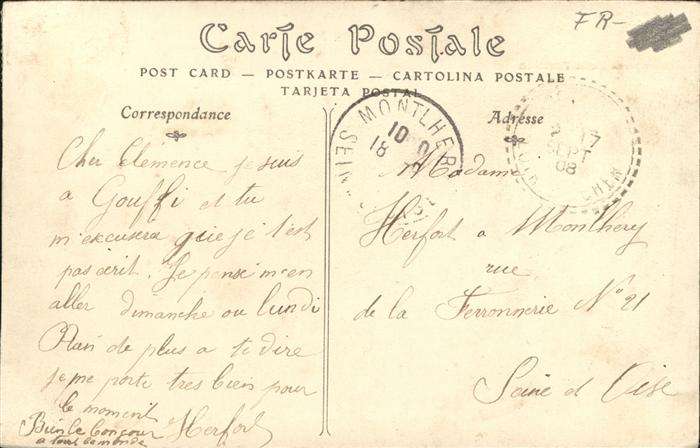 FR-
Carte Postale
POST CARD — POSTKARTE — CARTOLINA POSTALE
TARJETA POSTAL
Correspondance
Cher Clémence je suis
a Gouffi et tu
m'excusera que je t'est
pas écrit. Je pense m'en
aller dimanche ou lundi
Rien de plus a te dire
je me porte tres bien pour
le moment
Bien le bonjour Herfort
a tout le monde
MONTLHERY
10
18
SEINE
Adresse
08
Madame
Herfort a Montlhery
rue
de la Ferronnerie N° 21
Seine et Oise